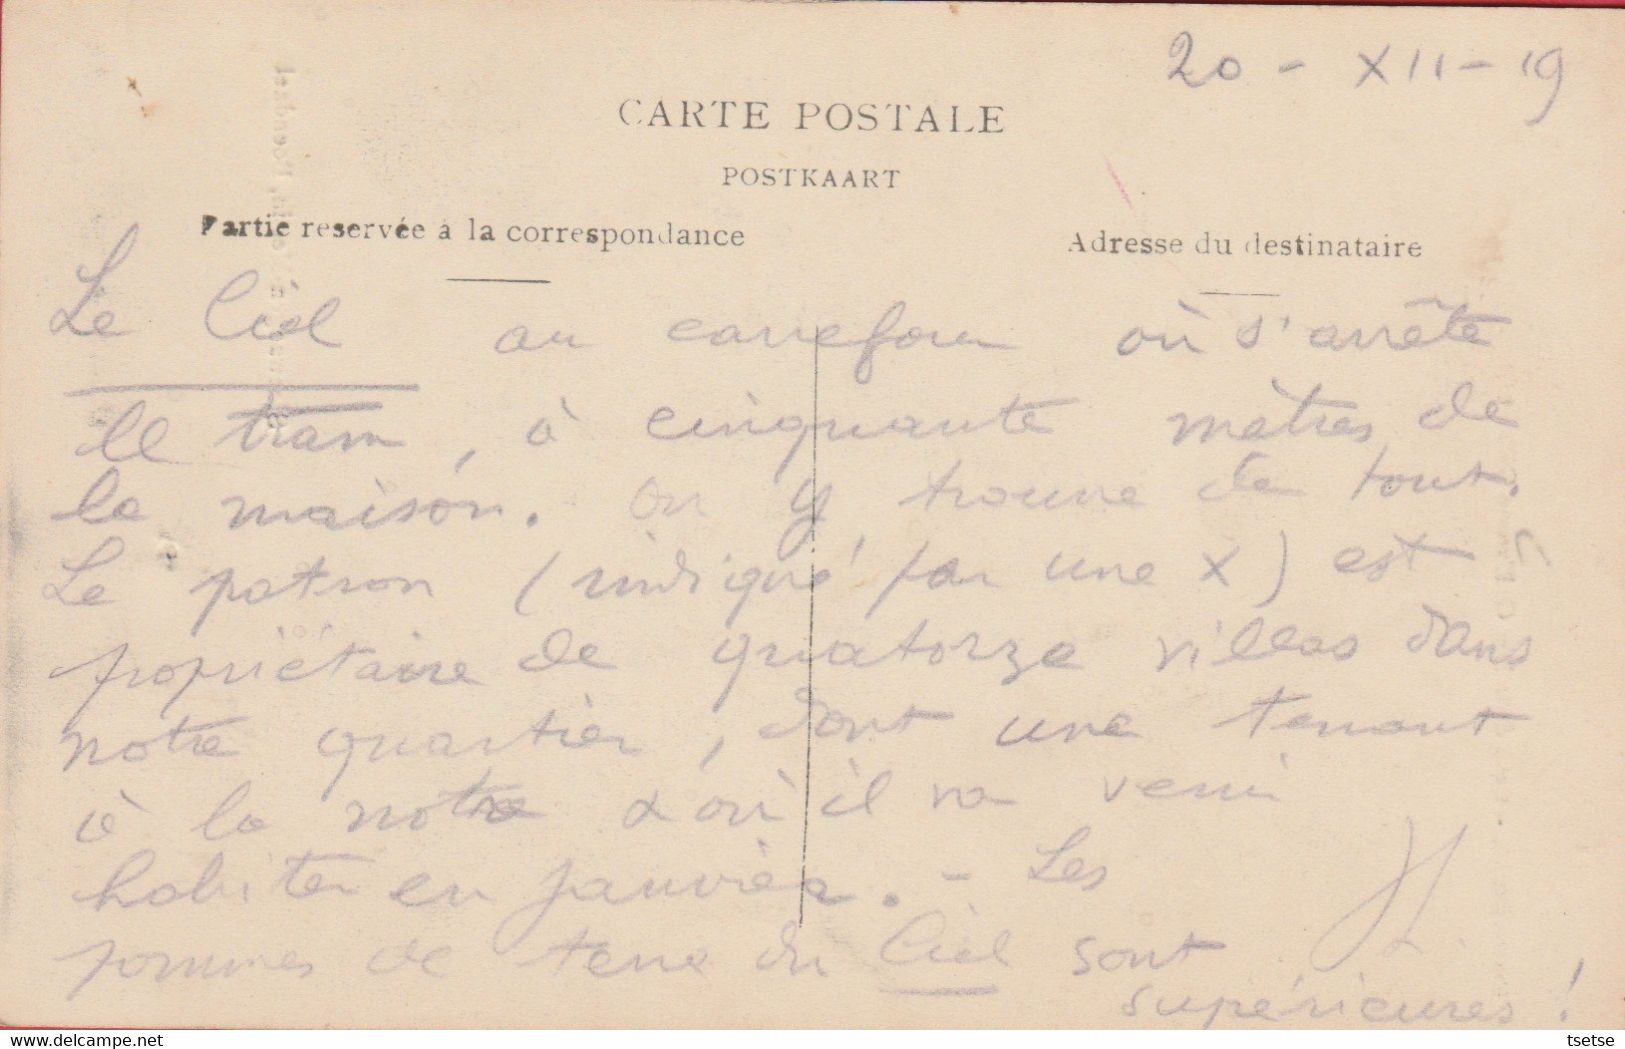 20 - XII - 19
CARTE POSTALE
POSTKAART
Partie reservée à la correspondance
Adresse du destinataire
Le Ciel au carrefour où s'arrête
le tram, à cinquante mètres de
la maison. On y trouve de tout.
Le patron (indiqué par une X) est
propriétaire de quatorze villas dans
notre quartier, dont une tenant
à la notre & où il va venir
habiter en janvier. - Les
pommes de terre du Ciel sont
supérieures !
delcampe.net
tsetse